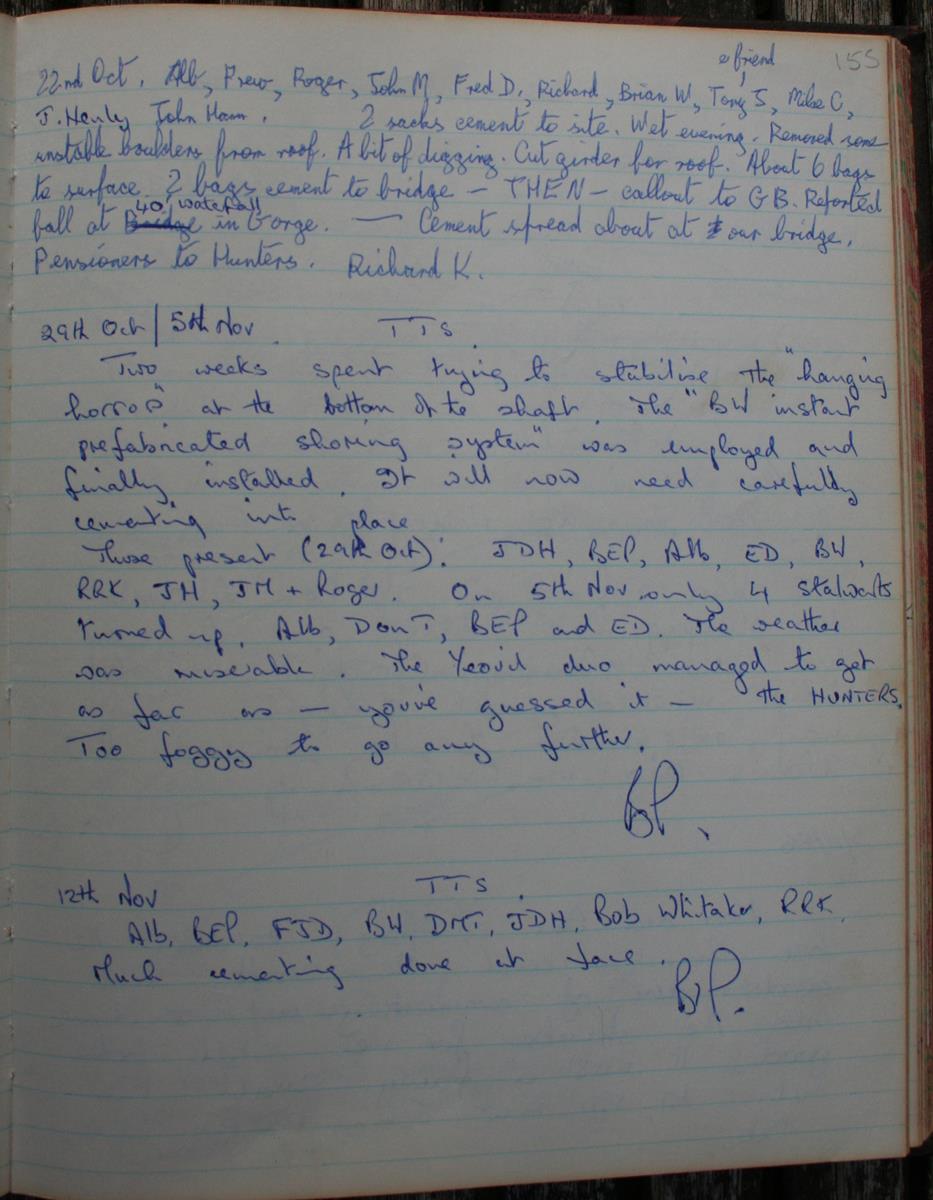 & friend
155
22nd Oct. Alb, Prew, Roger, John M, Fred D., Richard, Brian W, Tony S, Mike C,
J. Hanly John Ham. 2 sacks cement to site. Wet evening. Removed some
unstable boulders from roof. A bit of digging. Cut girder for roof. About 6 bags
to surface. 2 bags cement to bridge — THEN — callout to GB. Reported
40' waterfall
fall at Bridge in Gorge. — Cement spread about at our bridge.
Pensioners to Hunters. Richard K.
29th Oct / 5th Nov. TTS.
Two weeks spent trying to stabilise the "hanging
horror" at the bottom of the shaft. The "BW instant
prefabricated shoring system" was employed and
finally installed. It will now need carefully
cementing into place
Those present (29th Oct): JDH, BEP, Alb, ED, BW,
RRK, JH, JM + Roger. On 5th Nov only 4 stalwarts
turned up, Alb, Don T, BEP and ED. The weather
was miserable. The Yeovil duo managed to get
as far as — you've guessed it — the HUNTERS.
Too foggy to go any further.
BP.
12th Nov TTS.
Alb, BEP, FJD, BW, DMT, JDH, Bob Whitaker, RRK.
Much cementing done at face.
BP.